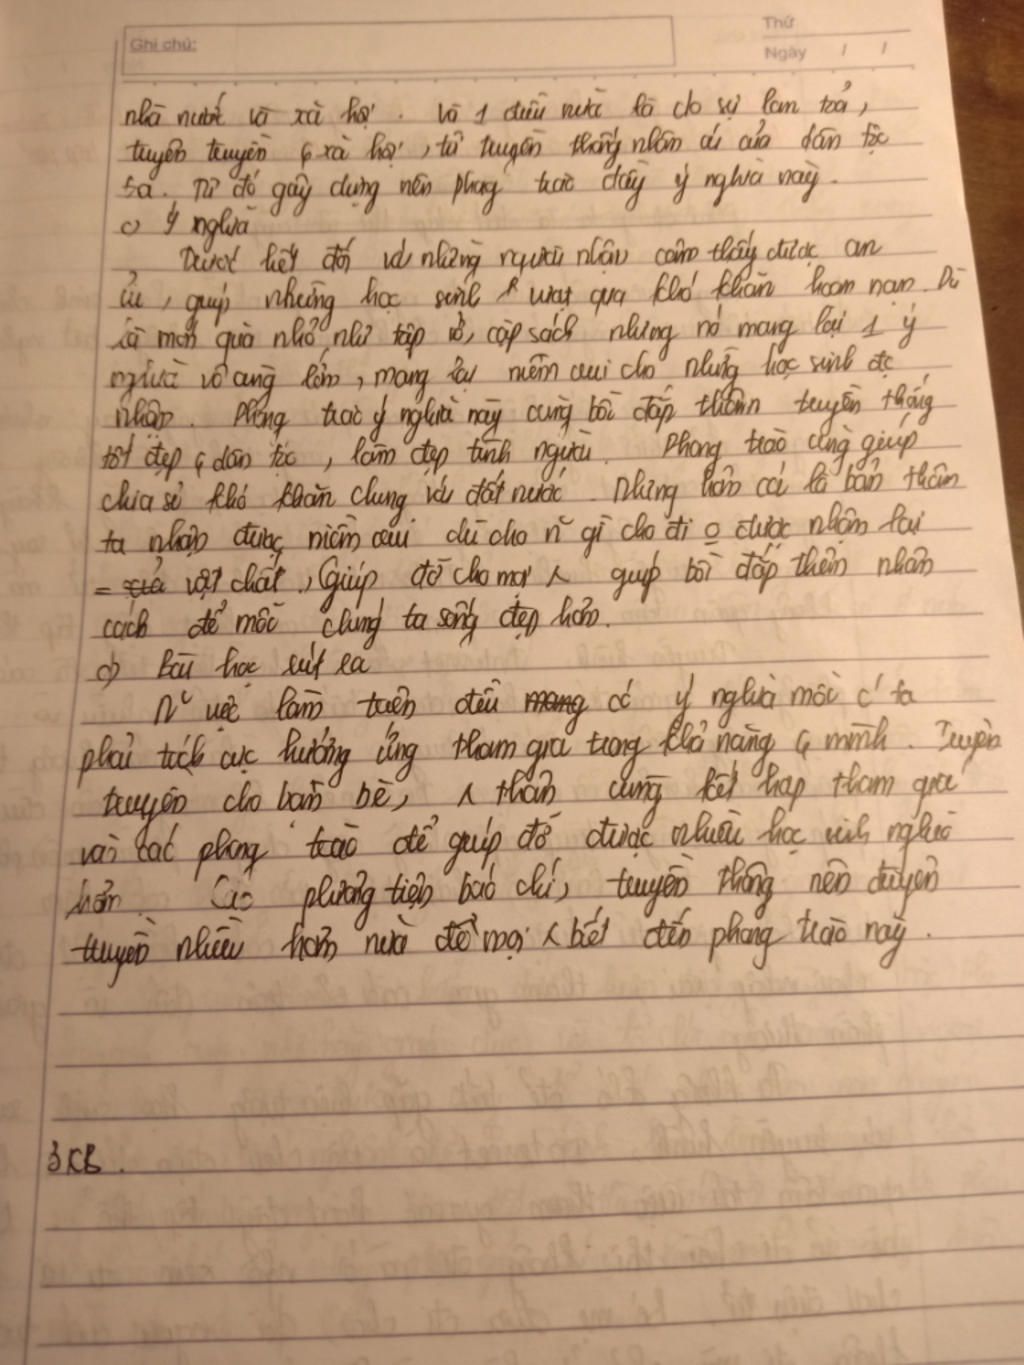 Ghi chú:
Thứ
Ngày / /
nhà nước và xã hội. Và 1 điều nữa là do sự lan toả,
tuyên truyền ς xã hội, từ truyền thống nhân ái của dân tộc
ta. Từ đó gây dựng nên phong trào đầy ý nghĩa này.
c) Ý nghĩa
Trước hết đối với những người nhận cảm thấy được an
ủi, giúp những học sinh vượt qua khó khăn hoạn nạn. Dù
là món quà nhỏ như tập vở, cặp sách nhưng nó mang lại 1 ý
nghĩa vô cùng lớn, mang lại niềm vui cho những học sinh đc
nhận. Phong trào ý nghĩa này cũng bồi đắp thêm truyền thống
tốt đẹp ς dân tộc, làm đẹp tình người. Phong trào cũng giúp
chia sẻ khó khăn chung với đất nước. Nhưng hơn cả là bản thân
ta nhận được niềm vui dù cho n~ gì cho đi o được nhận lại
= vật chất, Giúp đỡ cho mọi ʌ giúp bồi đắp thêm nhân
cách để mỗi chúng ta sống đẹp hơn.
d) Bài học rút ra
N~ việc làm trên đều mang có ý nghĩa mỗi c' ta
phải tích cực hưởng ứng tham gia trong khả năng ς mình. Tuyên
truyền cho bạn bè, ʌ thân cùng kết hợp tham gia
vào các phong trào để giúp đỡ được nhiều học sinh nghèo
hơn. Các phương tiện báo chí, truyền thông nên tuyên
truyền nhiều hơn nữa để mọi ʌ biết đến phong trào này.
3, KB.